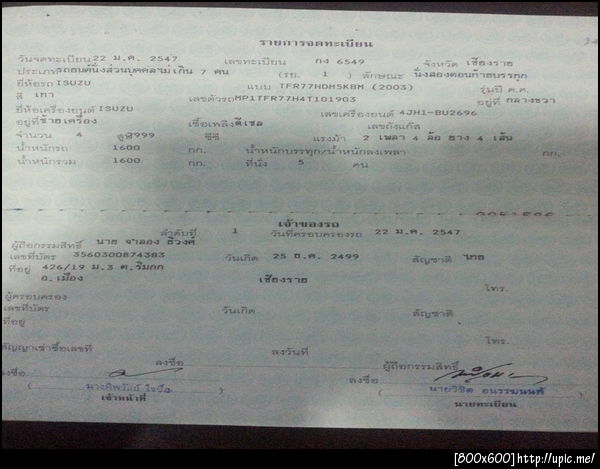 รายการจดทะเบียน
วันจดทะเบียน 22 ม.ค. 2547 เลขทะเบียน กง 6549 จังหวัด เชียงราย
ประเภท รถยนต์นั่งส่วนบุคคลไม่เกิน 7 คน (รย. 1 ) ลักษณะ นั่งสองตอนท้ายบรรทุก
ยี่ห้อรถ ISUZU แบบ TFR77HDM5KBM (2003) รุ่นปี ค.ศ.
สี เทา เลขตัวรถ MP1TFR77H4T101903 อยู่ที่ กลางขวา
ยี่ห้อเครื่องยนต์ ISUZU เลขเครื่องยนต์ 4JH1-BU2696
อยู่ที่ ซ้ายเครื่อง เชื้อเพลิง ดีเซล เลขถังแก๊ส
จำนวน 4 สูบ 2999 ซีซี แรงม้า 2 เพลา 4 ล้อ ยาง 4 เส้น
น้ำหนักรถ 1600 กก. น้ำหนักบรรทุก/น้ำหนักลงเพลา กก.
น้ำหนักรวม 1600 กก. ที่นั่ง 5 คน
เจ้าของรถ
ลำดับที่ 1 วันที่ครอบครองรถ 22 ม.ค. 2547
ผู้ถือกรรมสิทธิ์ นาย จำลอง
เลขที่บัตร 3560300874383 วันเกิด 25 ธ.ค. 2499 สัญชาติ ไทย
ที่อยู่ 426/19 ม.3 ต.ริมกก
อ.เมือง เชียงราย โทร.
ผู้ครอบครอง
เลขที่บัตร วันเกิด สัญชาติ
ที่อยู่
โทร.
สัญญาเช่าซื้อเลขที่ ลงวันที่ ผู้ถือกรรมสิทธิ์
ลงชื่อ ลงชื่อ ลงชื่อ
เจ้าหน้าที่ นายทะเบียน
[800x600]http://upic.me/